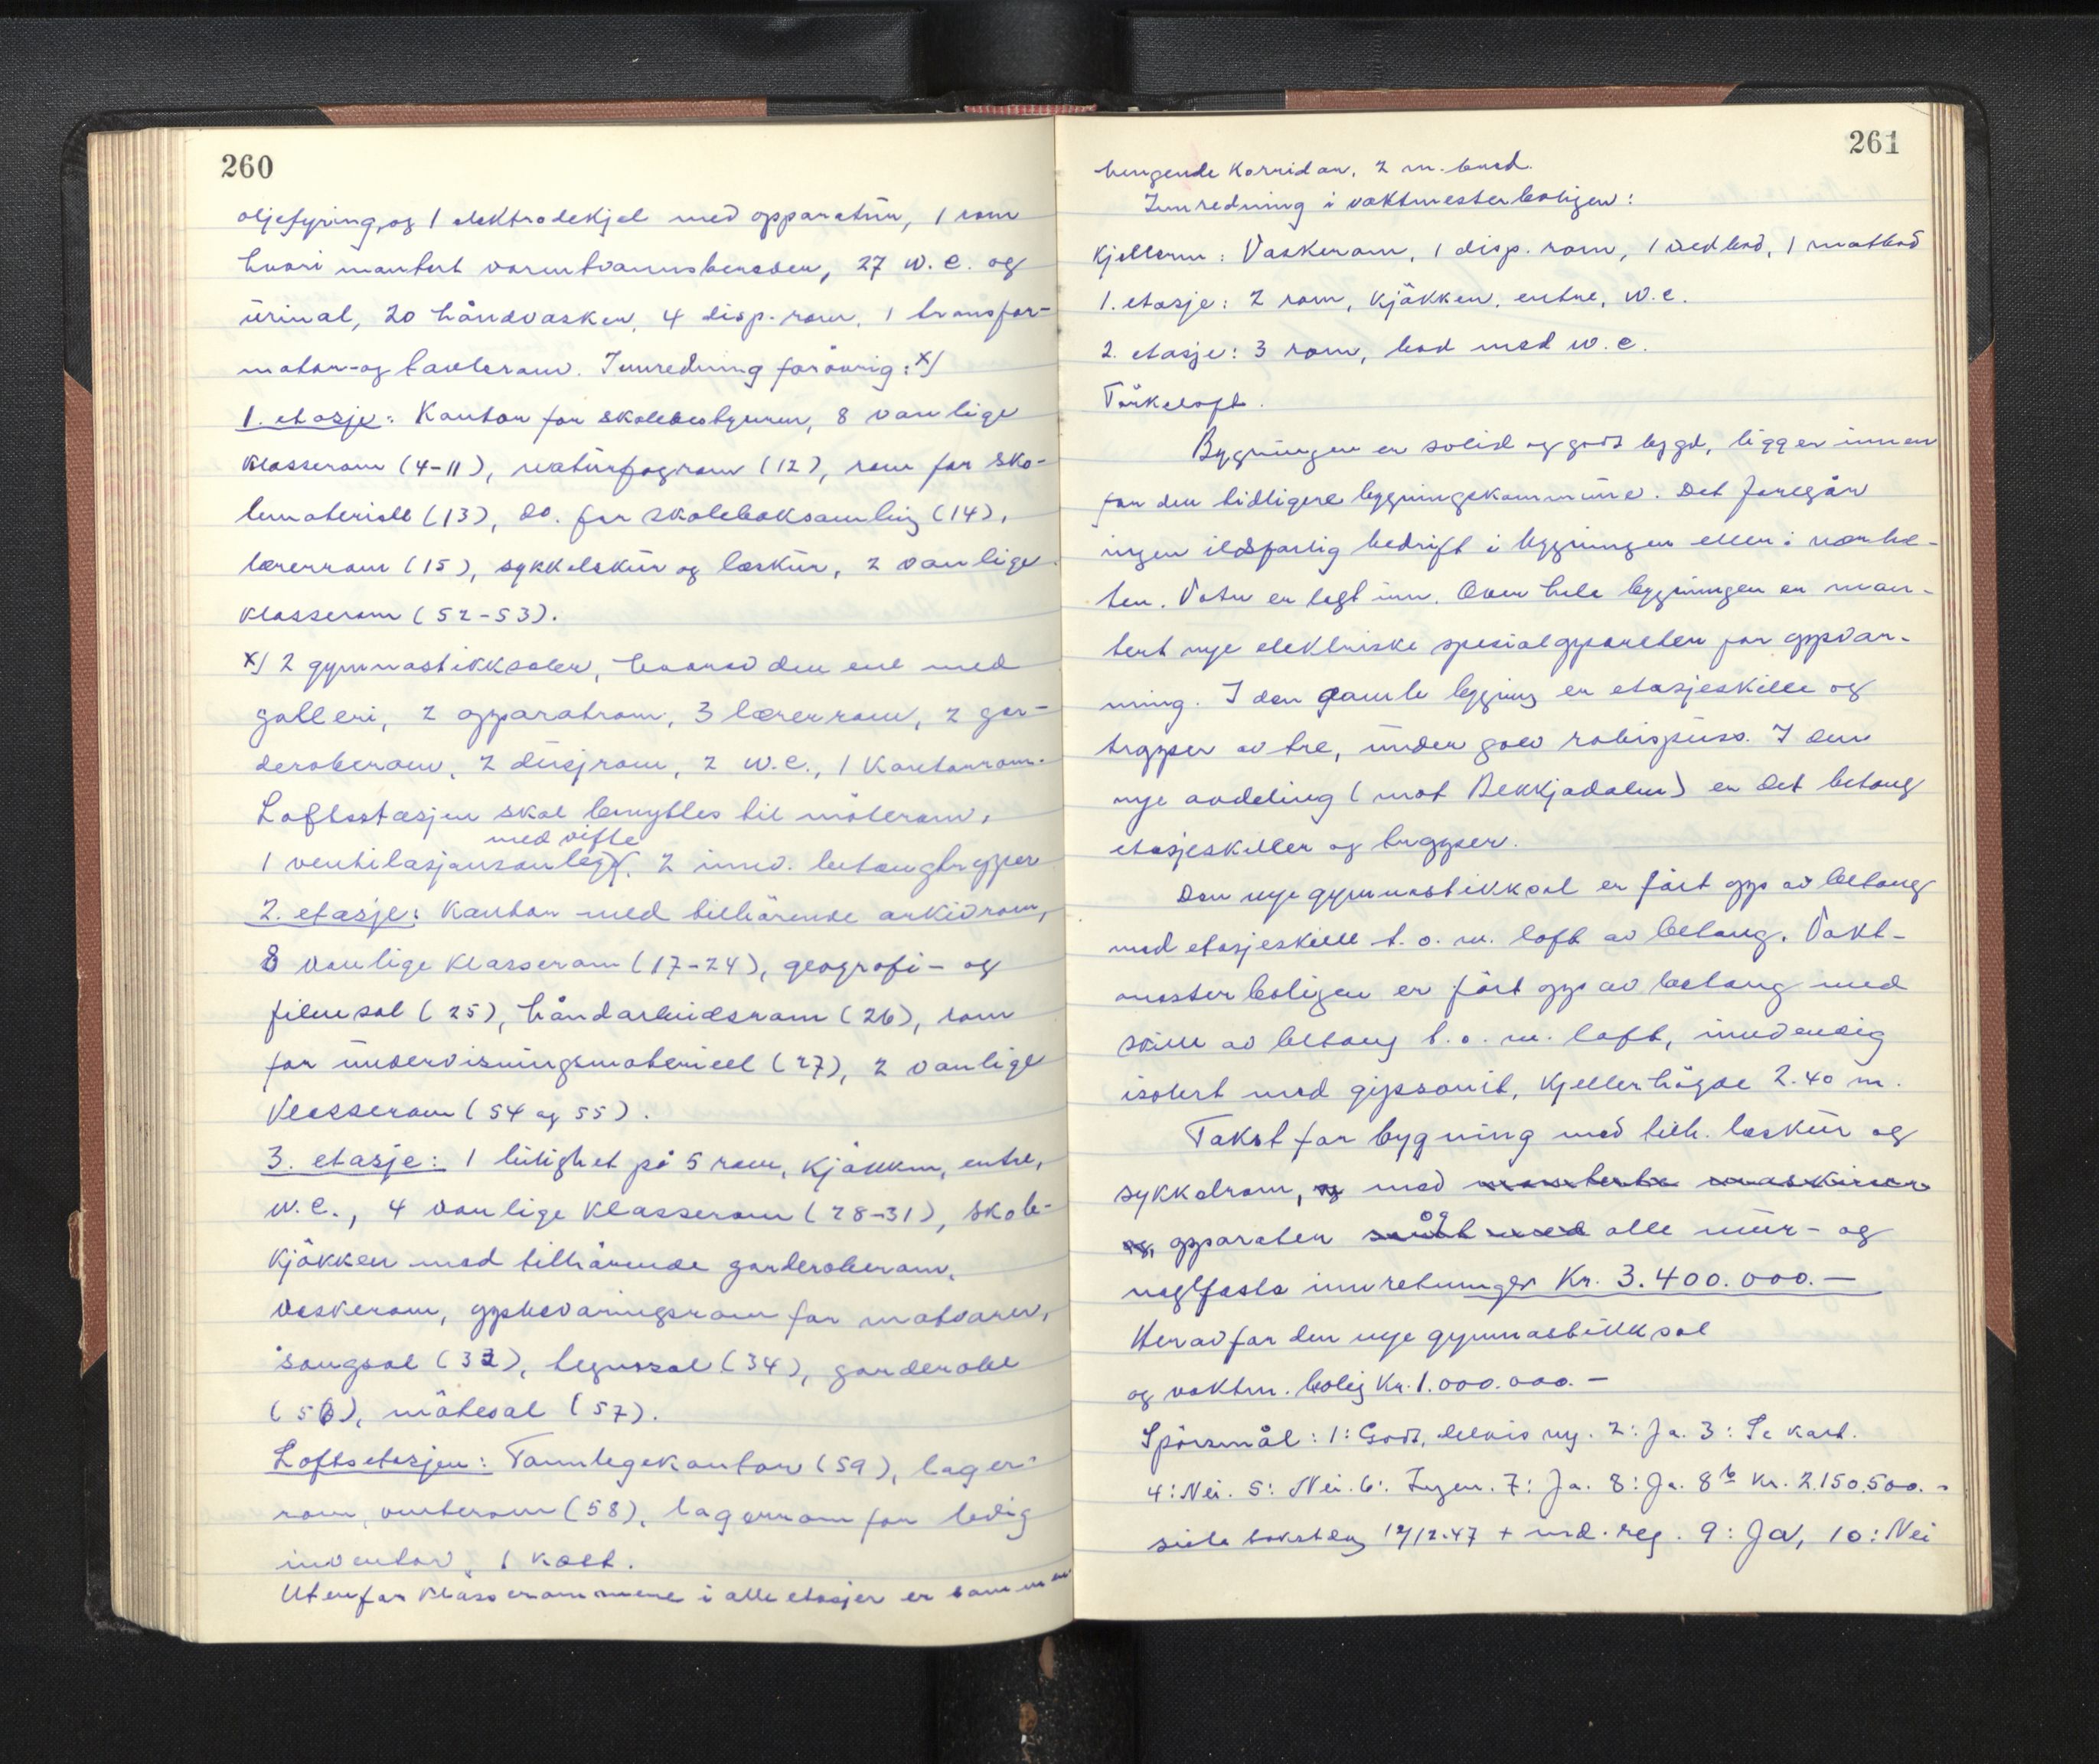 260
oljefyring, og 1 elektrodekjel med apparatur, 1 rom
hvori montert varmtvannsbereder, 27 w.c. og
urinal, 20 håndvasker, 4 disp. rom, 1 transfor-
mator- og tavlerom. Innredning forøvrig: x)
1. etasje: Kontor for skolebestyreren, 8 vanlige
klasserom (4-11), naturfagrom (12), rom for sko-
lemateriell (13), do. for skoleboksamling (14),
lærerrom (15), sykkelskur og leskur, 2 vanlige
klasserom (52-53).
x) 2 gymnastikksaler, hvorav den ene med
galleri, 2 apparatrom, 3 lærerrom, 2 gar-
deroberom, 2 dusjrom, 2 w.c., 1 kontorrom.
Loftsetasjen skal benyttes til møterom,
med vifte
1 ventilasjonsanlegg. 2 innv. betongtrapper
2. etasje: Kontor med tilhørende arkivrom,
8 vanlige klasserom (17-24), geografi- og
filmsal (25), håndarbeidsrom (26), rom
for undervisningsmateriell (27), 2 vanlige
klasserom (54 og 55).
3. etasje: 1 leilighet på 5 rom, kjøkken, entre,
w.c., 4 vanlige klasserom (28-31), skole-
kjøkken med tilhørende garderoberom,
vaskerom, oppbevaringsrom for matvarer,
sangsal (32), tegnesal (34), garderobe
(56), møtesal (57).
Loftsetasjen: Tannlegekontor (59), lager-
rom, venterom (58), lagerrom for ledig
inventar, 1 kott.
Utenfor klasserommene i alle etasjer er sammen
261
hengende korridor, 2 m. bred.
Innredning i vaktmesterboligen:
Kjelleren: Vaskerom, 1 disp. rom, 1 vedbod, 1 matbod
1. etasje: 2 rom, kjøkken, entre, w.c.
2. etasje: 3 rom, bad med w.c.
Tørkeloft.
Bygningen er solid og godt bygd, ligger innen
for den tidligere bygningskommune. Det foregår
ingen ildsfarlig bedrift i bygningen eller i nærhe-
ten. Vann er lagt inn. Over hele bygningen er mon-
tert nye elektriske spesialapparater for oppvar-
ming. I den gamle bygning er etasjeskille og
trapper av tre, under golv rabispuss. I den
nye avdeling (mot Bekkjadalen) er det betong
etasjeskiller og trapper.
Den nye gymnastikksal er ført opp av betong
med etasjeskille t. o. m. loft av betong. Vakt-
mesterboligen er ført opp av betong med
skille av betong t. o. m. loft, innvendig
isolert med gipsonit, kjellerhøgde 2.40 m.
Takst for bygning med tilh. leskur og
sykkelrom, og med monterte maskiner
og, apparater samt med og alle mur- og
naglfaste innretninger Kr. 3.400.000.-
Herav for den nye gymnastikksal
og vaktm. bolig Kr. 1.000.000.-
Spørsmål: 1: Godt, delvis ny. 2: Ja. 3: Se kart.
4: Nei. 5: Nei. 6: Ingen. 7: Ja. 8: Ja. 8b Kr. 2.150.500.-
siste takst dag 12/12.47 + ned. reg. 9: Ja, 10: Nei